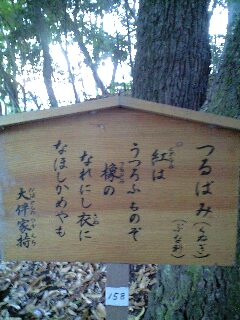 つるばみ(くぬぎ)
(ぶな科)
紅は
うつろふものぞ
橡の
なれにし衣に
なほしかめやも
大伴家持
158